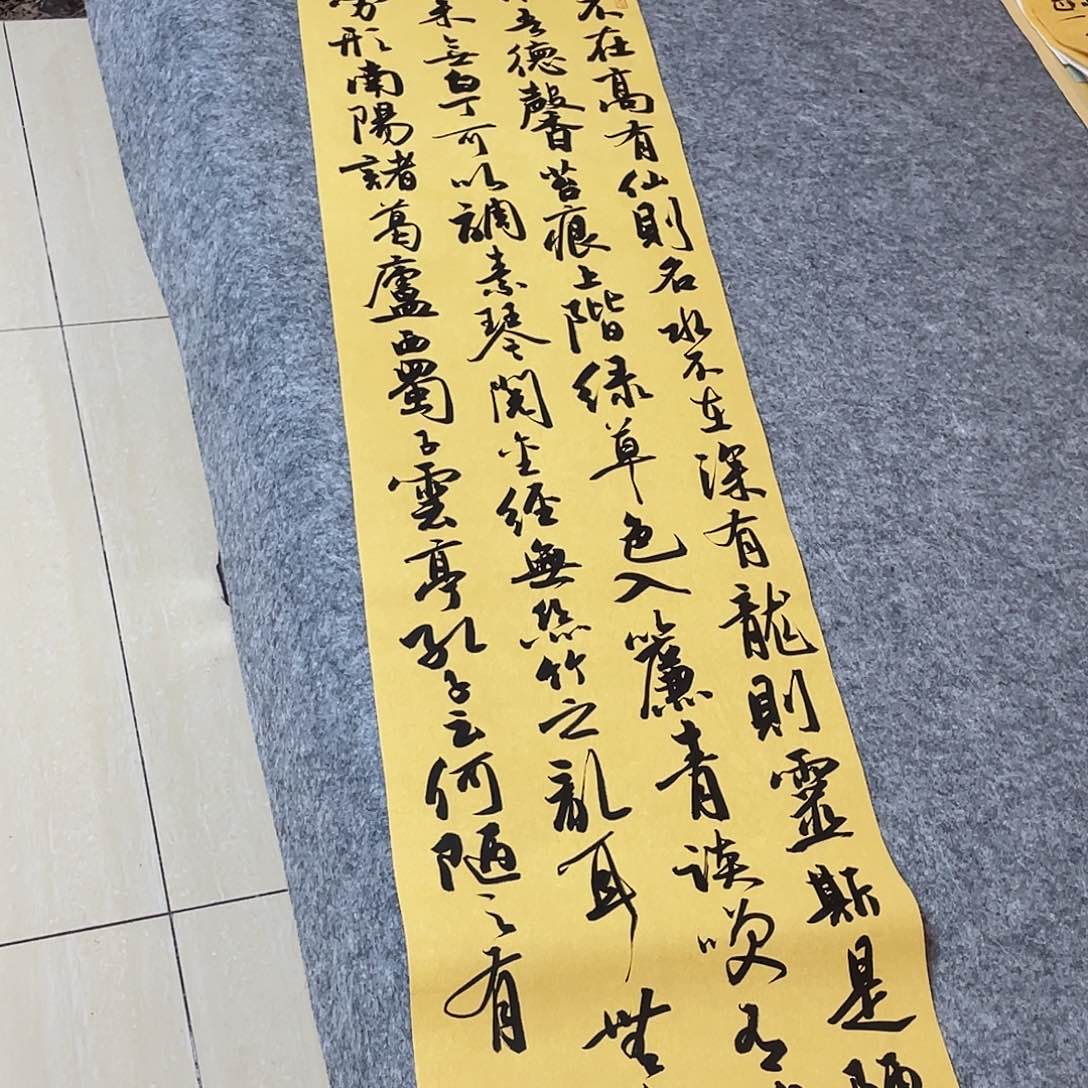 不在高有仙則名水不在深有龍則靈斯是陋
吾德馨苔痕上階綠草色入簾青談笑有
來無白丁可以調素琴閱金經無絲竹之亂耳無
勞形南陽諸葛廬西蜀子雲亭孔子云何陋之有